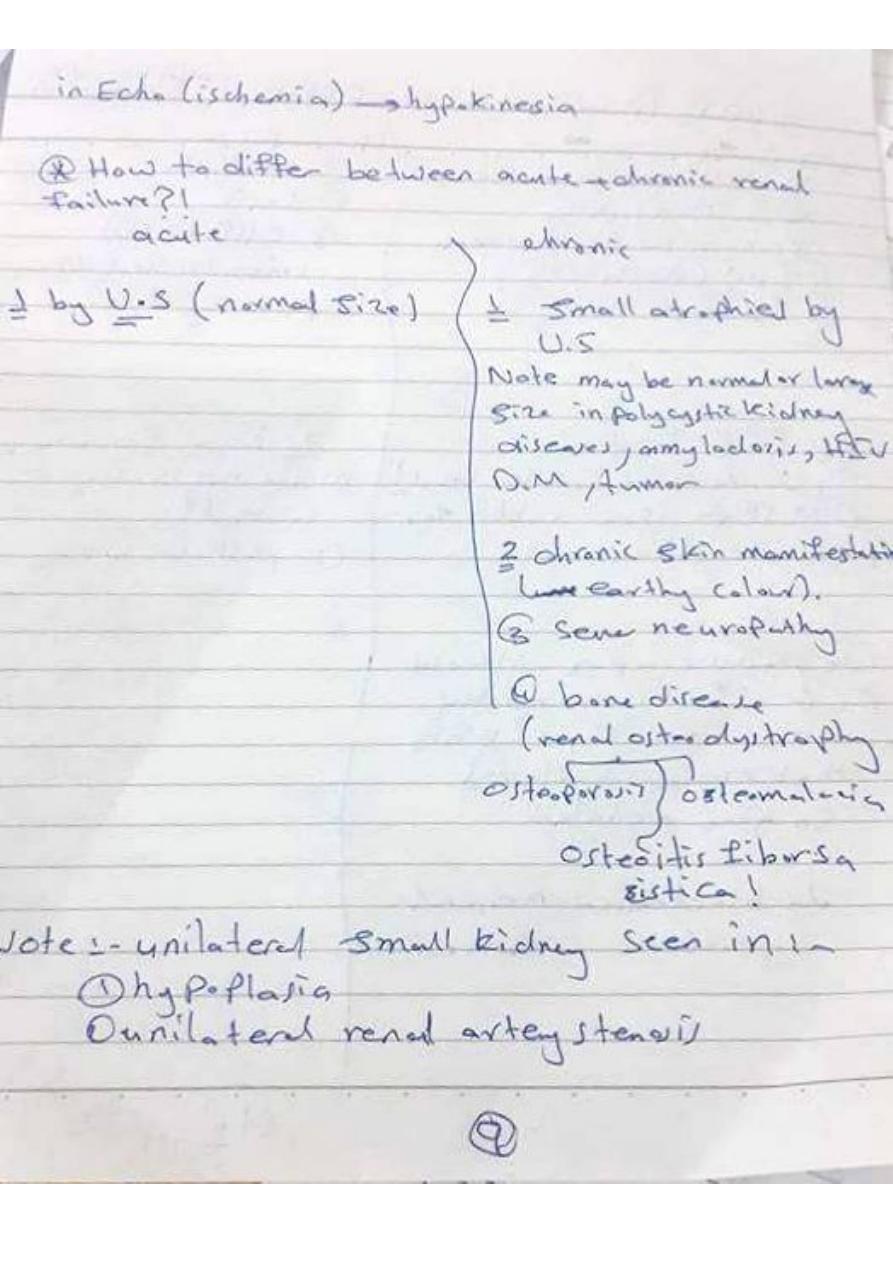 in Echo (ischemia) → hypokinesia
* How to differ between acute + chronic renal
failure?!
acute
1 by U.S (normal size)
chronic
1 small atrophied by
U.S
Note may be normal or large
size in polycystic kidney
diseases, amyloidosis, HIV
D.M, tumor
2 chronic skin manifestation
(earthy colour).
3 neuropathy
4 bone disease
(renal osteodystrophy
osteoporosis osteomalacia
Osteoitis fiborsa
sistica!
Note :- unilateral small kidney seen in :-
1 hypoplasia
unilateral renal artery stenosis
9